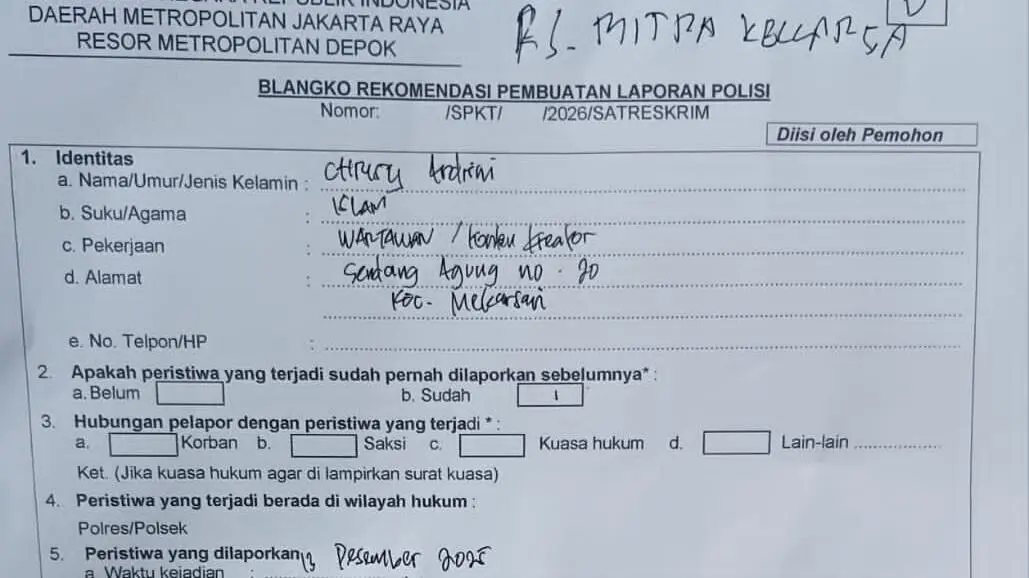 REPUBLIK INDONESIA
DAERAH METROPOLITAN JAKARTA RAYA
RESOR METROPOLITAN DEPOK
RS. MITRA KELUARGA
BLANGKO REKOMENDASI PEMBUATAN LAPORAN POLISI
Nomor: /SPKT/ /2026/SATRESKRIM
Diisi oleh Pemohon
1. Identitas
a. Nama/Umur/Jenis Kelamin : Andrini
b. Suku/Agama : ISLAM
c. Pekerjaan : WARTAWAN / konten kreator
d. Alamat : Sendang Agung no. 20
Kec. Mekarsari
e. No. Telpon/HP :
2. Apakah peristiwa yang terjadi sudah pernah dilaporkan sebelumnya* :
a. Belum b. Sudah
3. Hubungan pelapor dengan peristiwa yang terjadi * :
a. Korban b. Saksi c. Kuasa hukum d. Lain-lain ................
Ket. (Jika kuasa hukum agar di lampirkan surat kuasa)
4. Peristiwa yang terjadi berada di wilayah hukum :
Polres/Polsek
5. Peristiwa yang dilaporkan 13 Desember 2025
a. Waktu kejadian :